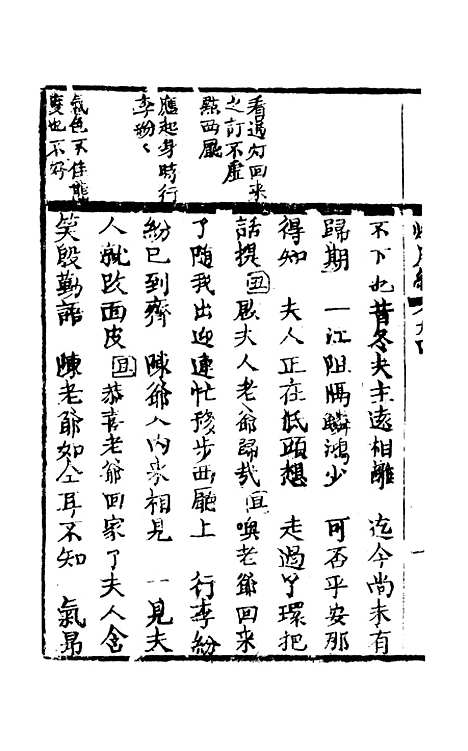 看過勻回來
之訂不虛
點西廳
應起身時行
李紛〻
氣色不佳態
度也不好
不下也昔冬夫主遠相離　迄今尚未有
歸期　一江阻隔鱗鴻少　可否平安那
得知　夫人正在低頭想　走過丫環把
話提　啟夫人老爺歸哉　唤老爺回來
了隨我出迎連忙移步西廳上　行李紛
紛已到齊　陳爺入內來相見　一見夫
人就改面皮　恭喜老爺回家了夫人含
笑殷勤語　陳老爺如仝耳不知　氣昂